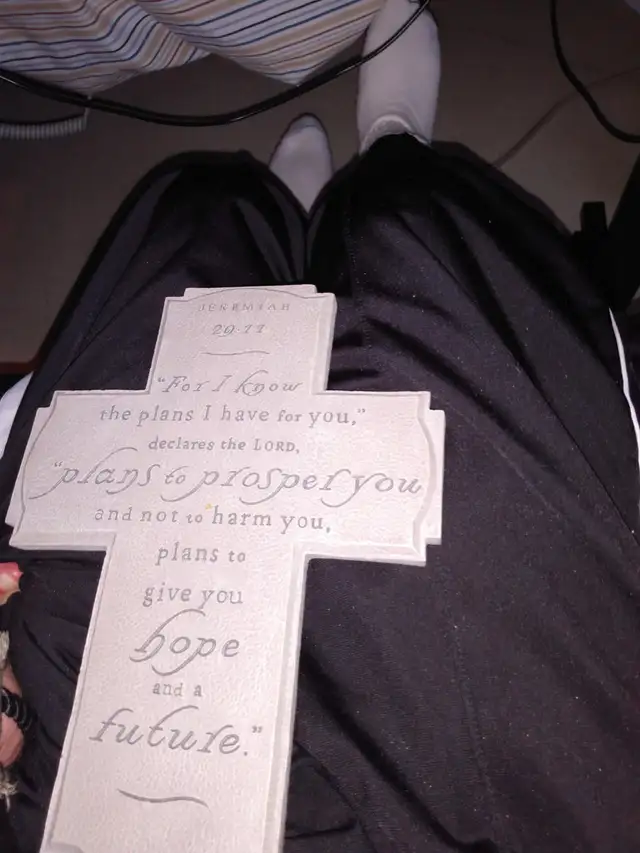 JEREMIAH
29:11
"For I know
the plans I have for you,"
declares the LORD,
"plans to prosper you
and not to harm you,
plans to
give you
hope
and a
future."